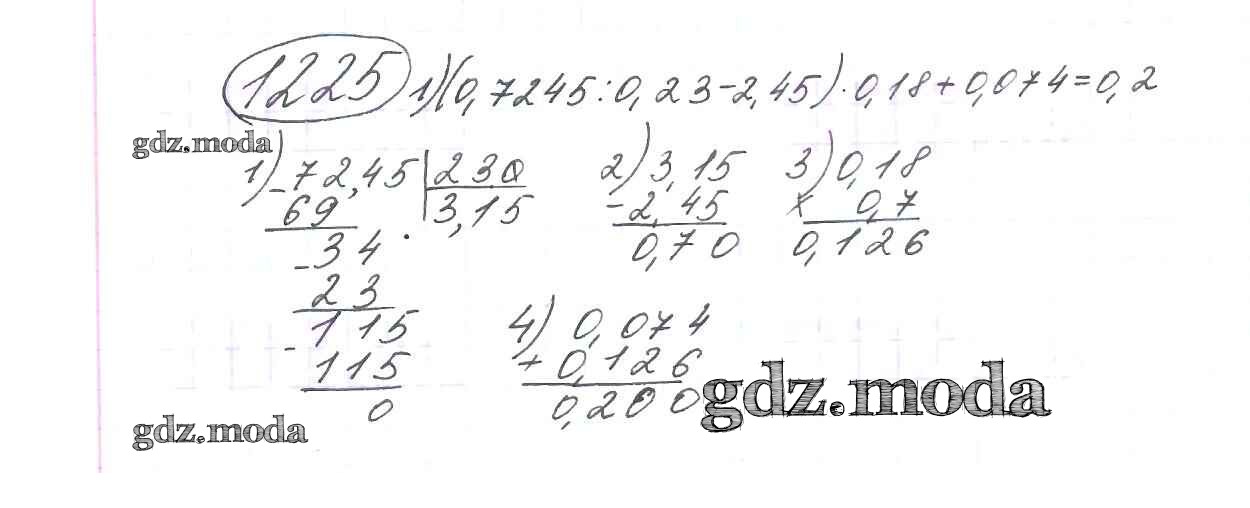 1225 1) (0,7245:0,23-2,45)·0,18+0,074=0,2
gdz.moda
1) -72,45 | 230
69 3,15
-34
23
-115
115
0
2) 3,15
-2,45
0,70
3) 0,18
x 0,7
0,126
4) 0,074
+ 0,126
0,200
gdz.moda
gdz.moda